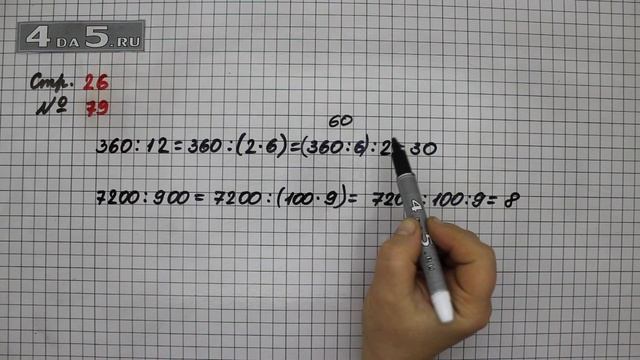 4DA5.RU
Стр. 26
№ 79
60
360:12=360:(2·6)=(360:6):2=30
7200:900=7200:(100·9)=7200:100:9=8
4DA5.RU